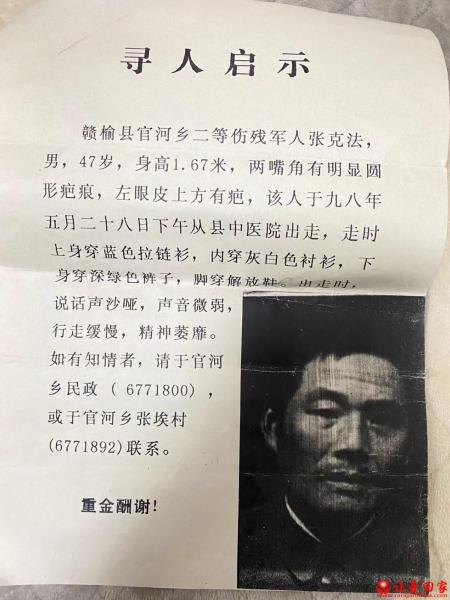 寻人启示
赣榆县官河乡二等伤残军人张克法，
男，47岁，身高1.67米，两嘴角有明显圆
形疤痕，左眼皮上方有疤，该人于九八年
五月二十八日下午从县中医院出走，走时
上身穿蓝色拉链衫，内穿灰白色衬衫，下
身穿深绿色裤子，脚穿解放鞋。出走时，
说话声沙哑，声音微弱，
行走缓慢，精神萎靡。
如有知情者，请于官河
乡民政（6771800），
或于官河乡张埃村
(6771892)联系。
重金酬谢！